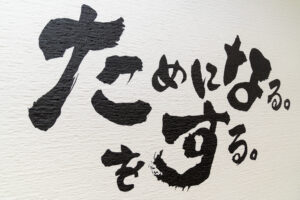 ためになる。
をする。